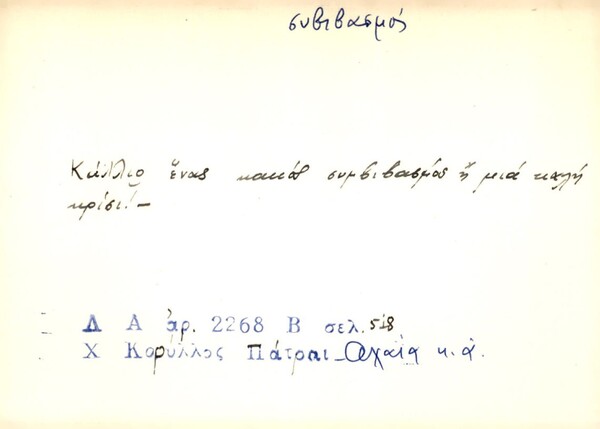 συβιβασμός
Κάλλιο ἕνας κακός συμβιβασμός ἤ μιά καλή
κρίσι!—
Δ Α ἀρ. 2268 Β σελ. 518
Χ Κορύλλος Πάτραι – Ἀχαΐα κ.ἀ.